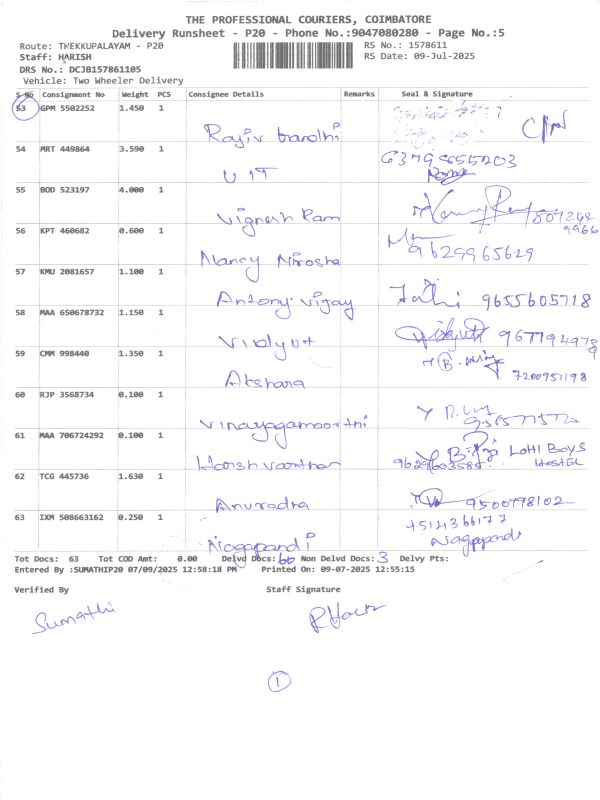 THE PROFESSIONAL COURIERS, COIMBATORE
Delivery Runsheet - P20 - Phone No.:9047080280 - Page No.:5
Route: THEKKUPALAYAM - P20
RS No.: 1578611
Staff: HARISH
RS Date: 09-Jul-2025
DRS No.: DCJB157861105
Vehicle: Two Wheeler Delivery
S No Consignment No Weight PCS Consignee Details Remarks Seal & Signature
53 GPM 5502252 1.450 1
Rajiv barathi
54 MRT 449864 3.590 1
UIT
55 BOD 523197 4.000 1
Vignesh Ram
56 KPT 460682 0.600 1
9629965629
Nancy Nirosha
57 KMU 2081657 1.100 1
Antony vijay 9655605718
58 MAA 650678732 1.150 1
Vidyut
59 CMM 998440 1.350 1
7200951198
Akshara
60 RJP 3568734 0.100 1
Vinayagamoorthi
61 MAA 706724292 0.100 1
LOTII BOYS
HOSTEL
Harish varthan
62 TCG 445736 1.630 1
Anuradha 9500798102
63 IXM 508663162 0.250 1
Nagapandi Nagapandi
Tot Docs: 63 Tot COD Amt: 0.00 Delvd Docs: 60 Non Delvd Docs: 3 Delvy Pts:
Entered By :SUMATHIP20 07/09/2025 12:58:18 PM Printed On: 09-07-2025 12:55:15
Verified By Staff Signature
Sumathi
1